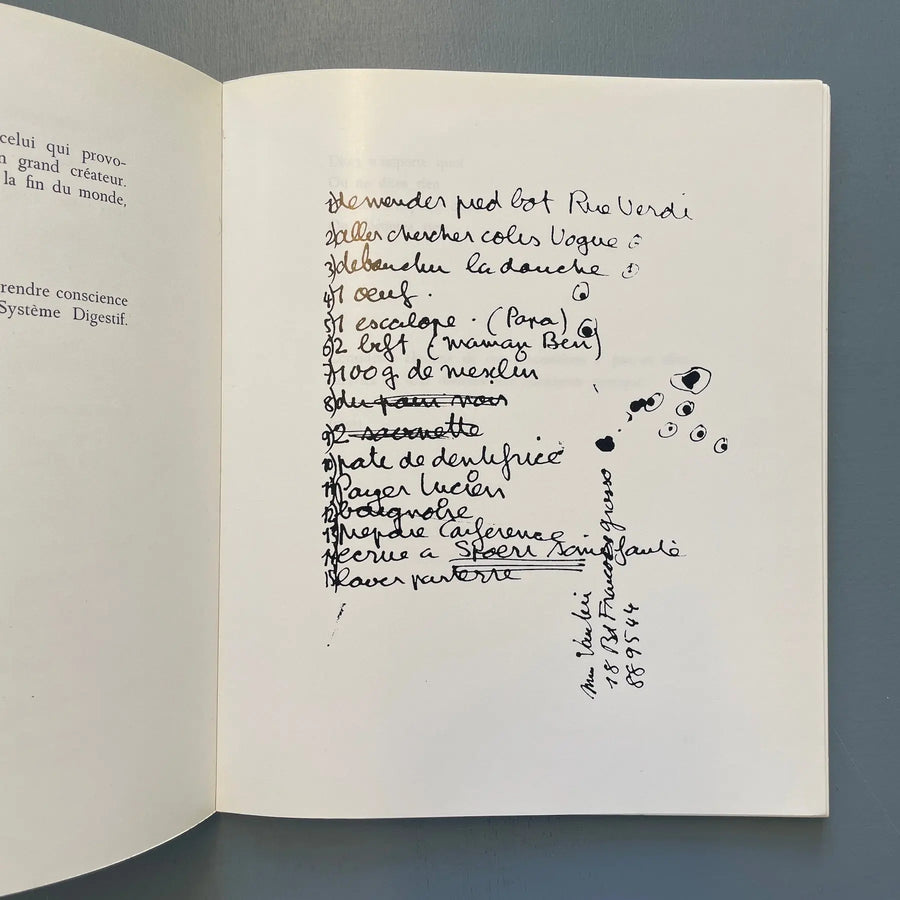 celui qui provo-
n grand créateur.
la fin du monde,
rendre conscience
Système Digestif.
1) demander pied bot Rue Verdi
2) aller chercher colis Vogue
3) deboucher la douche
4) 1 oeuf.
5) 1 escalope. (Papa)
6) 2 bift (maman Ben)
7) 100g de mesclun
8) du pain noir
9) 2
10) pate de dentifrice
11) Payer Lucien
12) baignoire
13) prepare Conférence
14) ecrire a Spoerri sans faute
15) laver parterre
18 Bd Francois grosso
889544